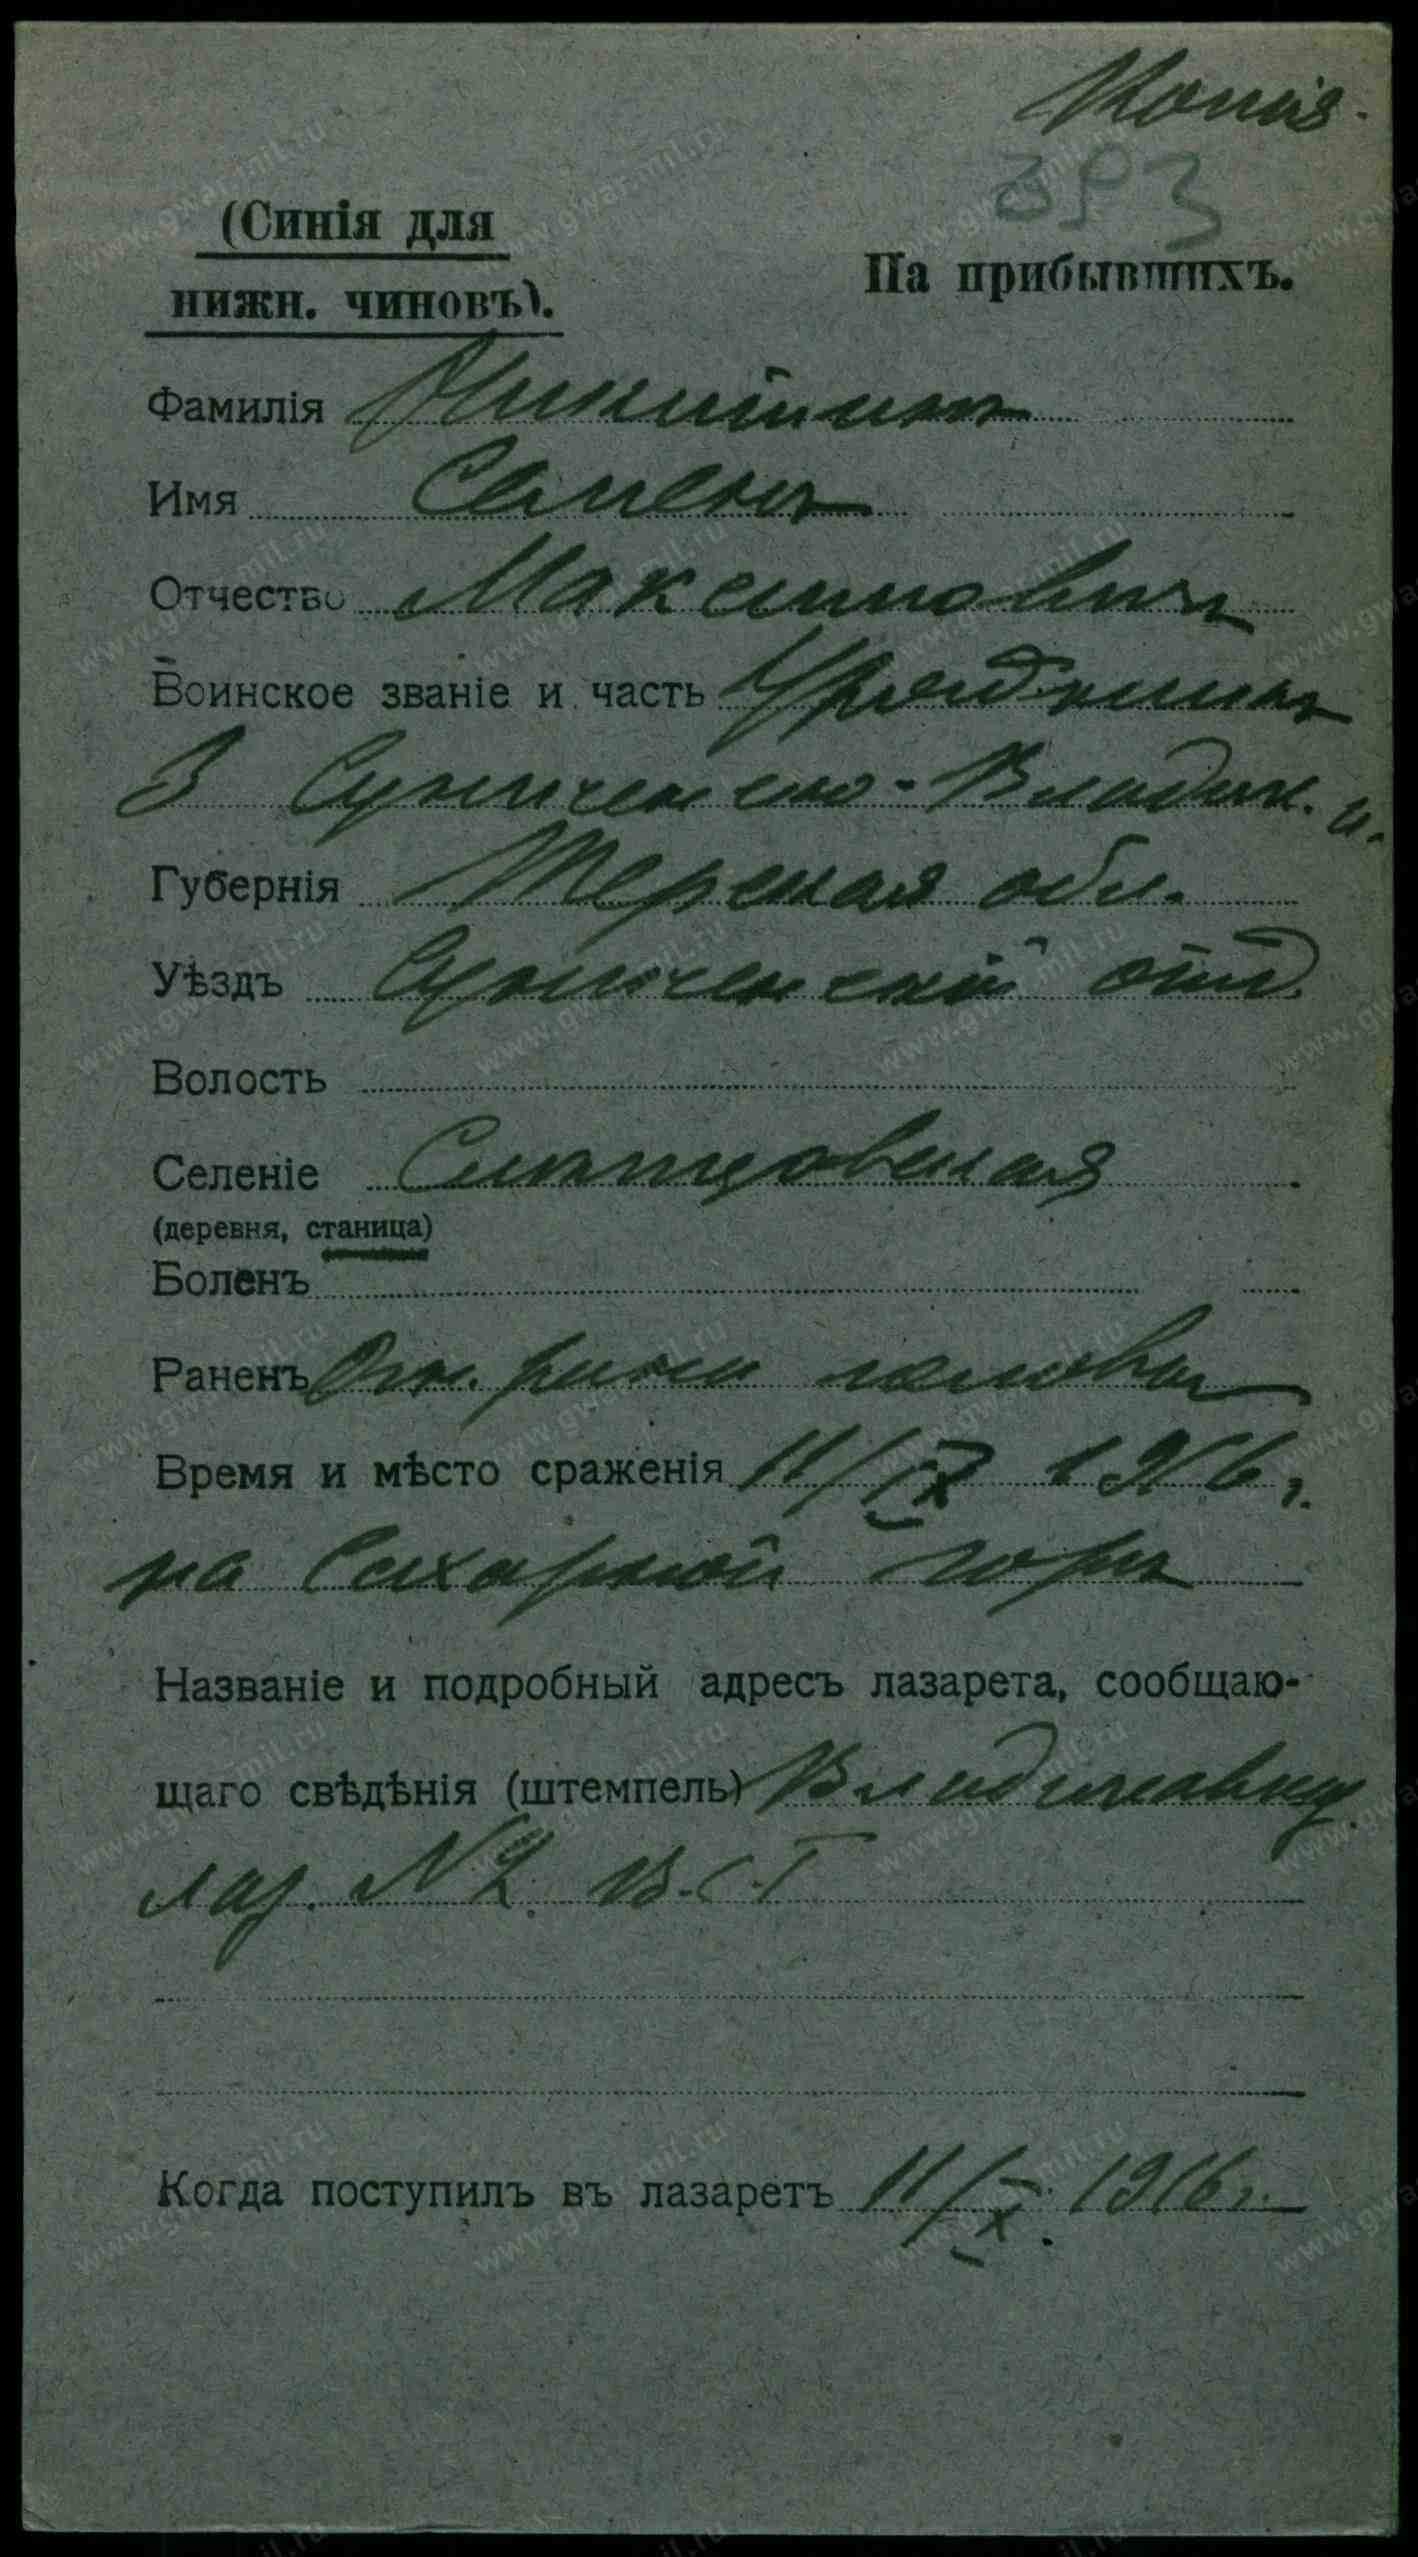 Копія.
393
(Синія для
нижн. чиновъ).
На прибывшихъ.
Фамилія Никитинъ
Имя Семенъ
Отчество Максимовичъ
Воинское званіе и часть Урядникъ
3 Сунженско-Владик. п.
Губернія Терская обл.
Уѣздъ Сунженскій отд.
Волость
Селеніе Слѣпцовская
(деревня, станица)
Боленъ
Раненъ Огн. рана головы
Время и мѣсто сраженія 11/IX 1916 г.
на Сахарной горѣ
Названіе и подробный адресъ лазарета, сообщаю-
щаго свѣдѣнія (штемпель) Владикавказ.
лаз. №2 В.С.Г
Когда поступилъ въ лазаретъ 11/IX. 1916 г.
www.gwar.mil.ru